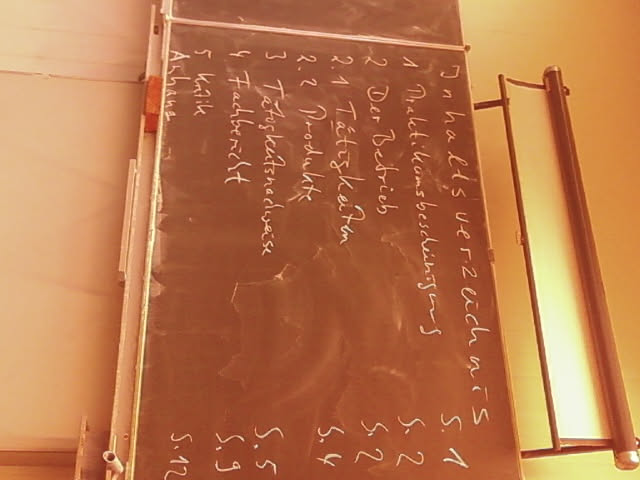 Inhaltsverzeichnis S. 1
1 Praktikumsbescheinigung S. 2
2 Der Betrieb S. 2
2.1 Tätigkeiten S. 4
2.2 Produkte
3 Tätigkeitsnachweise S. 5
4 Fachbericht S. 9
5 Kritik
Anhang S. 12